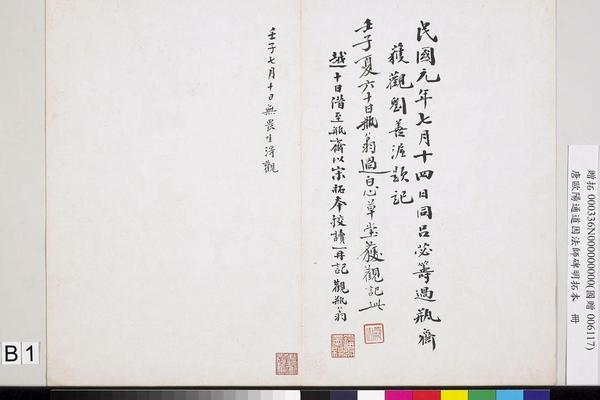 民國元年七月十四日同呂必籌過瓶齋
獲觀劉善涯題記
壬子夏六十日瓶翁過自心草堂獲觀記此
越十日偕至瓶齋以宗拓奉校讀一再記 觀瓶翁
壬子七月十日無畏生浔觀
贈拓 000336N000000000(國贈 006117)
唐歐陽通道因法師碑明拓本 冊
B 1